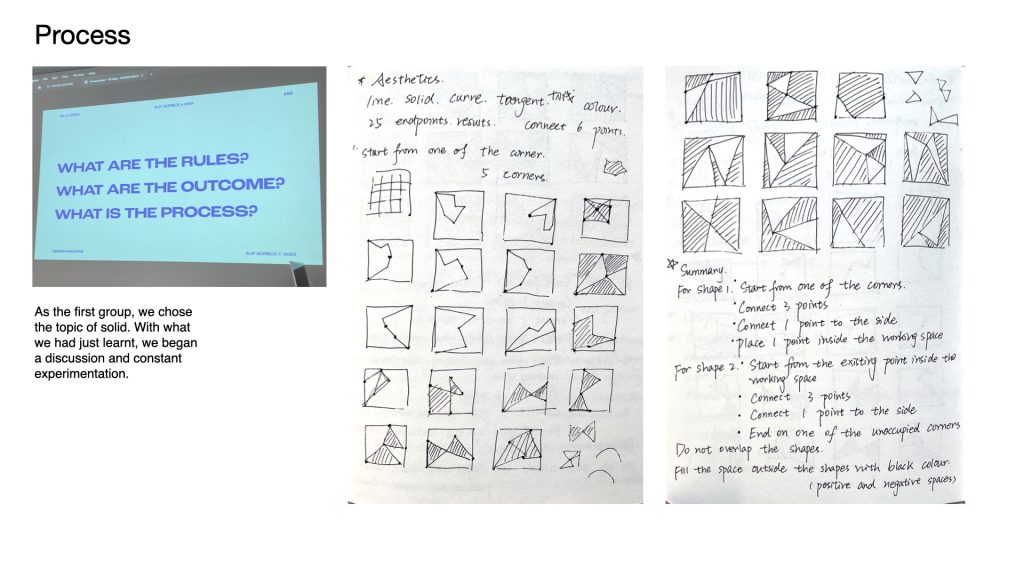 Process
WHAT ARE THE RULES?
WHAT ARE THE OUTCOME?
WHAT IS THE PROCESS?
ELIF GURBUZ © 2022
As the first group, we chose
the topic of solid. With what
we had just learnt, we began
a discussion and constant
experimentation.
* Aesthetics.
line. solid. curve. tangent. colour.
25 endpoints. results. connect 6 points.
1. start from one of the corner.
5 corners.
Summary.
For shape 1. • Start from one of the corners.
• Connect 3 points
• Connect 1 point to the side
• Place 1 point inside the working space
For shape 2. • Start from the existing point inside the
working space
• Connect 3 points
• Connect 1 point to the side
• End on one of the unoccupied corners
Do not overlap the shapes.
Fill the space outside the shapes with black colour.
(positive and negative spaces)